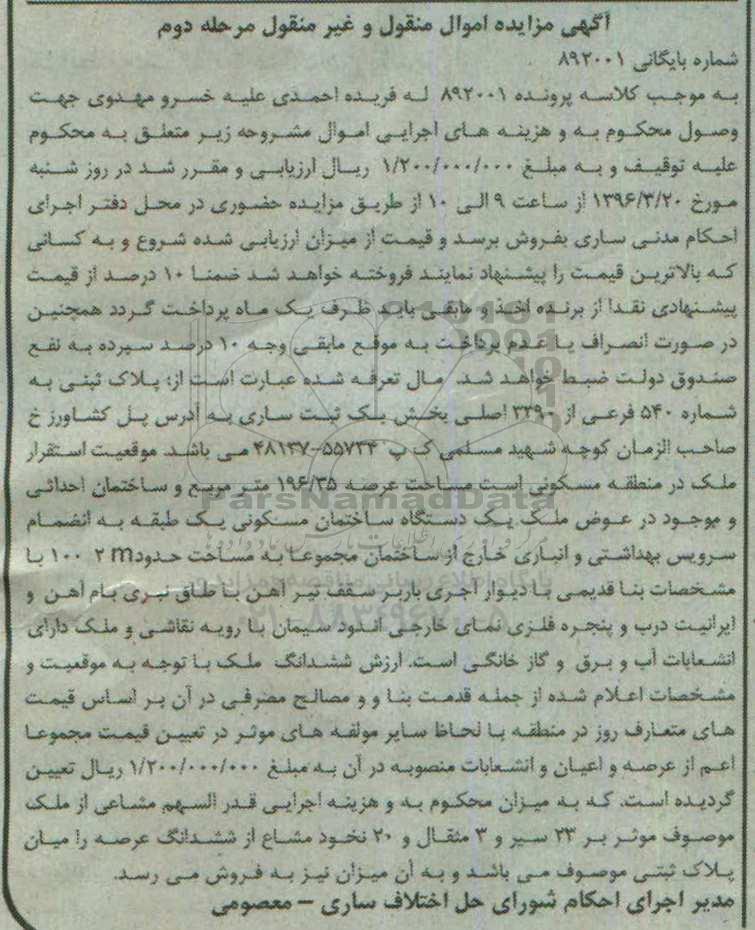 آگهی مزایده اموال منقول و غیر منقول مرحله دوم
شماره بایگانی ۸۹۲۰۰۱
به موجب کلاسه پرونده ۸۹۲۰۰۱ له فریده احمدی علیه خسرو مهدوی جهت
وصول محکوم به و هزینه های اجرایی اموال مشروحه زیر متعلق به محکوم
علیه توقیف و به مبلغ ۱/۲۰۰/۰۰۰/۰۰۰ ریال ارزیابی و مقرر شد در روز شنبه
مورخ ۱۳۹۶/۳/۲۰ از ساعت ۹ الی ۱۰ از طریق مزایده حضوری در محل دفتر اجرای
احکام مدنی ساری بفروش برسد و قیمت از میزان ارزیابی شده شروع و به کسانی
که بالاترین قیمت را پیشنهاد نمایند فروخته خواهد شد ضمنا ۱۰ درصد از قیمت
پیشنهادی نقدا از برنده اخذ و مابقی باید ظرف یک ماه پرداخت گردد همچنین
در صورت انصراف یا عدم پرداخت به موقع مابقی وجه ۱۰ درصد سپرده به نفع
صندوق دولت ضبط خواهد شد. مال تعرفه شده عبارت است از: پلاک ثبتی به
شماره ۵۴۰ فرعی از ۳۳۹۰ اصلی بخش یک ثبت ساری به آدرس پل کشاورز خ
صاحب الزمان کوچه شهید مسلمی ک پ ۵۵۷۳۴-۴۸۱۳۷ می باشد. موقعیت استقرار
ملک در منطقه مسکونی است مساحت عرصه ۱۹۶/۳۵ متر مربع و ساختمان احداثی
و موجود در عوض ملک یک دستگاه ساختمان مسکونی یک طبقه به انضمام
سرویس بهداشتی و انباری خارج از ساختمان مجموعا به مساحت حدود ۱۰۰ ۲ m با
مشخصات بنا قدیمی با دیوار آجری باربر سقف تیر آهن با طاق نبری بام آهن و
ایرانیت درب و پنجره فلزی نمای خارجی اندود سیمان با رویه نقاشی و ملک دارای
انشعابات آب و برق و گاز خانگی است. ارزش ششدانگ ملک با توجه به موقعیت و
مشخصات اعلام شده از جمله قدمت بنا و و مصالح مصرفی در آن بر اساس قیمت
های متعارف روز در منطقه با لحاظ سایر مولفه های موثر در تعیین قیمت مجموعا
اعم از عرصه و اعیان و انشعابات منصوبه در آن به مبلغ ۱/۲۰۰/۰۰۰/۰۰۰ ریال تعیین
گردیده است. که به میزان محکوم به و هزینه اجرایی قدر السهم مشاعی از ملک
موصوف موثر بر ۲۳ سیر و ۳ مثقال و ۲۰ نخود مشاع از ششدانگ عرصه را میان
پلاک ثبتی موصوف می باشد و به آن میزان نیز به فروش می رسد.
مدیر اجرای احکام شورای حل اختلاف ساری – معصومی
ParsNamadData